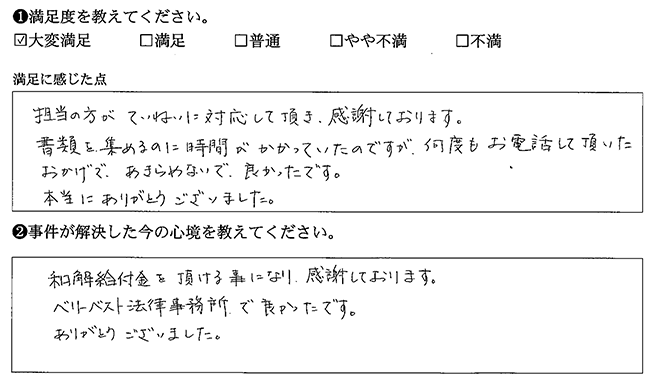 ❶満足度を教えてください。
☑大変満足 □満足 □普通 □やや不満 □不満
満足に感じた点
担当の方が ていねいに対応して頂き、感謝しております。
書類を集めるのに時間がかかっていたのですが、何度もお電話して頂いた
おかげで、あきらめないで、良かったです。
本当にありがとうございました。
❷事件が解決した今の心境を教えてください。
和解給付金を頂ける事になり、感謝しております。
ベリーベスト法律事務所で良かったです。
ありがとうございました。